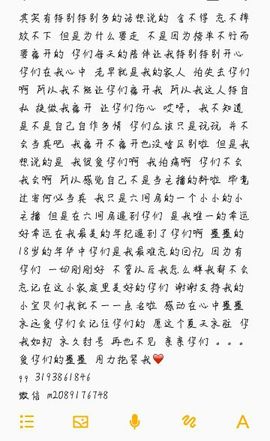 其实有特别特别多的话想说的 舍不得 忘不掉
放不下 但是为什么要走 不是因为榜单不竹而
要离开的 你们每天的陪伴让我特别特别开心
你们在我心中 老早就是我的家人 怕失去你们
啊 所以我不能让你们离开我 所以我这人特自
私 提做我离开 让你们伤心 哎呀，我不知道
是不是自己自作多情 你们应该只是玩玩 并不
会当真吧 我离开不离开也没啥区别啦 但是我
想说的是 我很爱你们啊 我怕痛啊 你们不会
我会啊 所以感觉自己不是当主播的料啦 毕竟
过客何必当真 我只是六间房的一个小小的小
主播 但是在六间房遇到你们 是我唯一的幸运
好幸运在我最美的年纪遇到了你们啊 墨墨的
18岁的年华中你们是我最难忘的回忆 因为有
你们 一切刚刚好 不管以后我怎么样我都不会
忘记在这小家庭里美好的你们 谢谢支持我的
小宝贝们我就不一一点名啦 感动在心中墨墨
永远爱你们会记住你们的 愿这个夏天永驻 你
我如初 永久封号 再也不见 亲亲你们 。。。
爱你们的墨墨 用力抱紧我❤️
qq 3193861846
微信 m2089176748